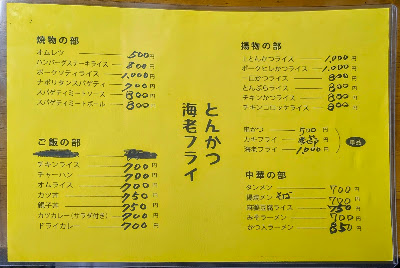 焼物の部
オムレツ 500円
ハンバーグステーキライス 800円
ポークソティライス 1,000円
ナポリタンスパゲティ 700円
スパゲティミートソース 800円
スパゲティミートボール 800円
ご飯の部
チキンライス 700円
チャーハン 700円
オムライス 700円
カツ丼 750円
親子丼 750円
カツカレー(サラダ付き) 900円
ドライカレー 700円
とんかつ
海老フライ
揚物の部
上とんかつライス 1,000円
ポークヒレかつライス 1,000円
一口かつライス 800円
とんぷらライス 800円
チキンカツライス 800円
チキンコロッケライス 800円
串かつ 500円
カキフライ
海老フライ 1,000円
単品
中華の部
タンメン 700円
そば 700円
麻婆豆腐ライス 750円
みそラーメン 700円
かつ入ラーメン 850円